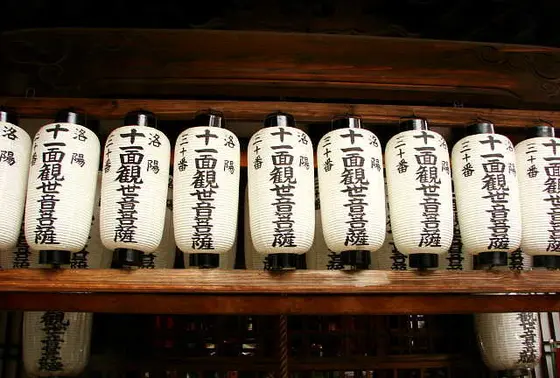 洛陽
洛陽
十一面観世音菩薩
三十番
洛陽
十一面観世音菩薩
三十番
洛陽
十一面観世音菩薩
三十番
洛陽
十一面観世音菩薩
三十番
洛陽
十一面観世音菩薩
三十番
洛陽
十一面観世音菩薩
三十番
洛陽
十一面観世音菩薩
三十番
十一面観世音菩薩
三十番